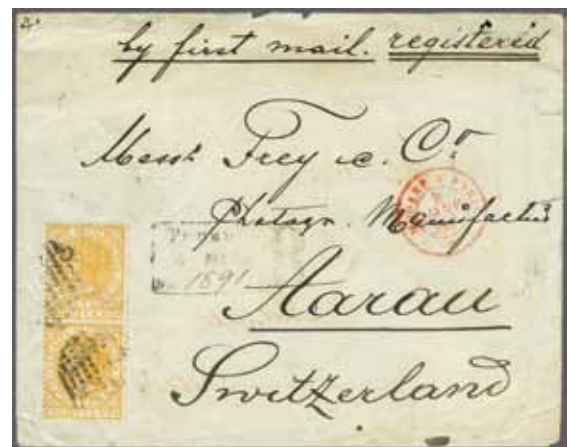 by first mail. registered
Messrs Frey & Co
Photogr. Manufactur
Penang
1891
Aarau
Switzerland